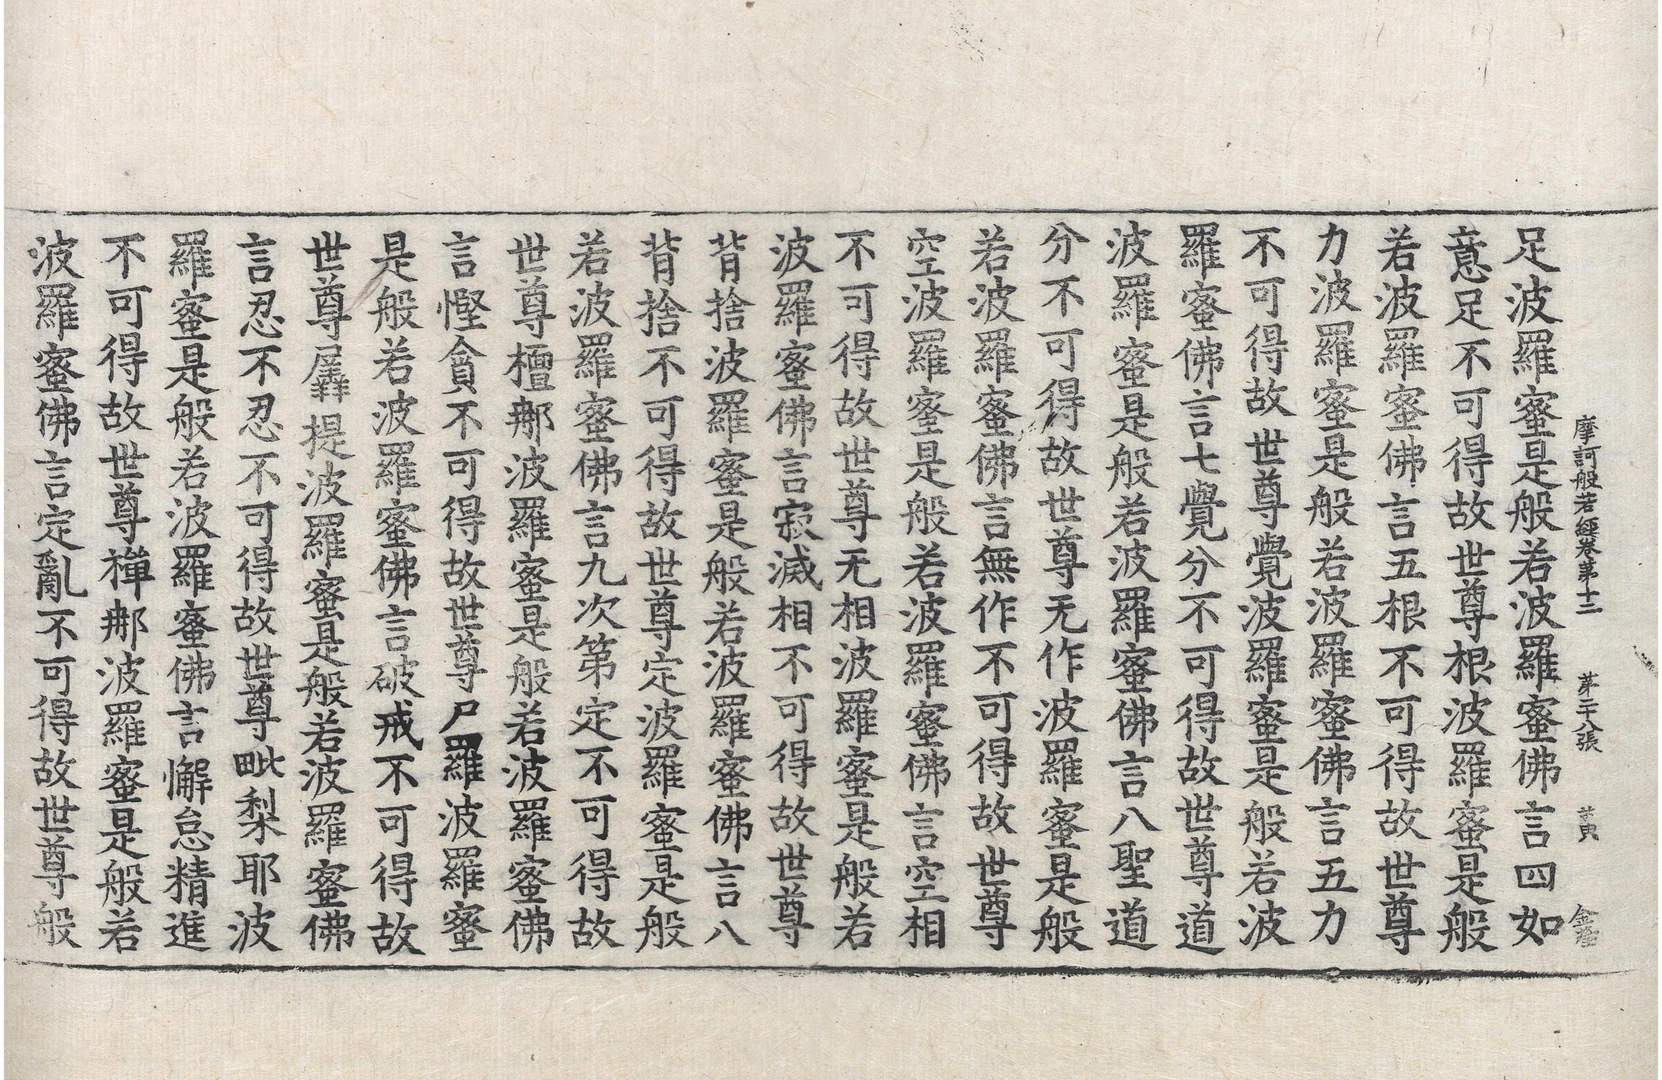 摩訶般若經卷第十二 苐二十八張 黃
足波羅蜜是般若波羅蜜佛言四如
意足不可得故世尊根波羅蜜是般
若波羅蜜佛言五根不可得故世尊
力波羅蜜是般若波羅蜜佛言五力
不可得故世尊覺波羅蜜是般若波
羅蜜佛言七覺分不可得故世尊道
波羅蜜是般若波羅蜜佛言八聖道
分不可得故世尊无作波羅蜜是般
若波羅蜜佛言無作不可得故世尊
空波羅蜜是般若波羅蜜佛言空相
不可得故世尊无相波羅蜜是般若
波羅蜜佛言寂滅相不可得故世尊
背捨波羅蜜是般若波羅蜜佛言八
背捨不可得故世尊定波羅蜜是般
若波羅蜜佛言九次第定不可得故
世尊檀那波羅蜜是般若波羅蜜佛
言慳貪不可得故世尊尸羅波羅蜜
是般若波羅蜜佛言破戒不可得故
世尊羼提波羅蜜是般若波羅蜜佛
言忍不忍不可得故世尊毗梨耶波
羅蜜是般若波羅蜜佛言懈怠精進
不可得故世尊禪那波羅蜜是般若
波羅蜜佛言定亂不可得故世尊般